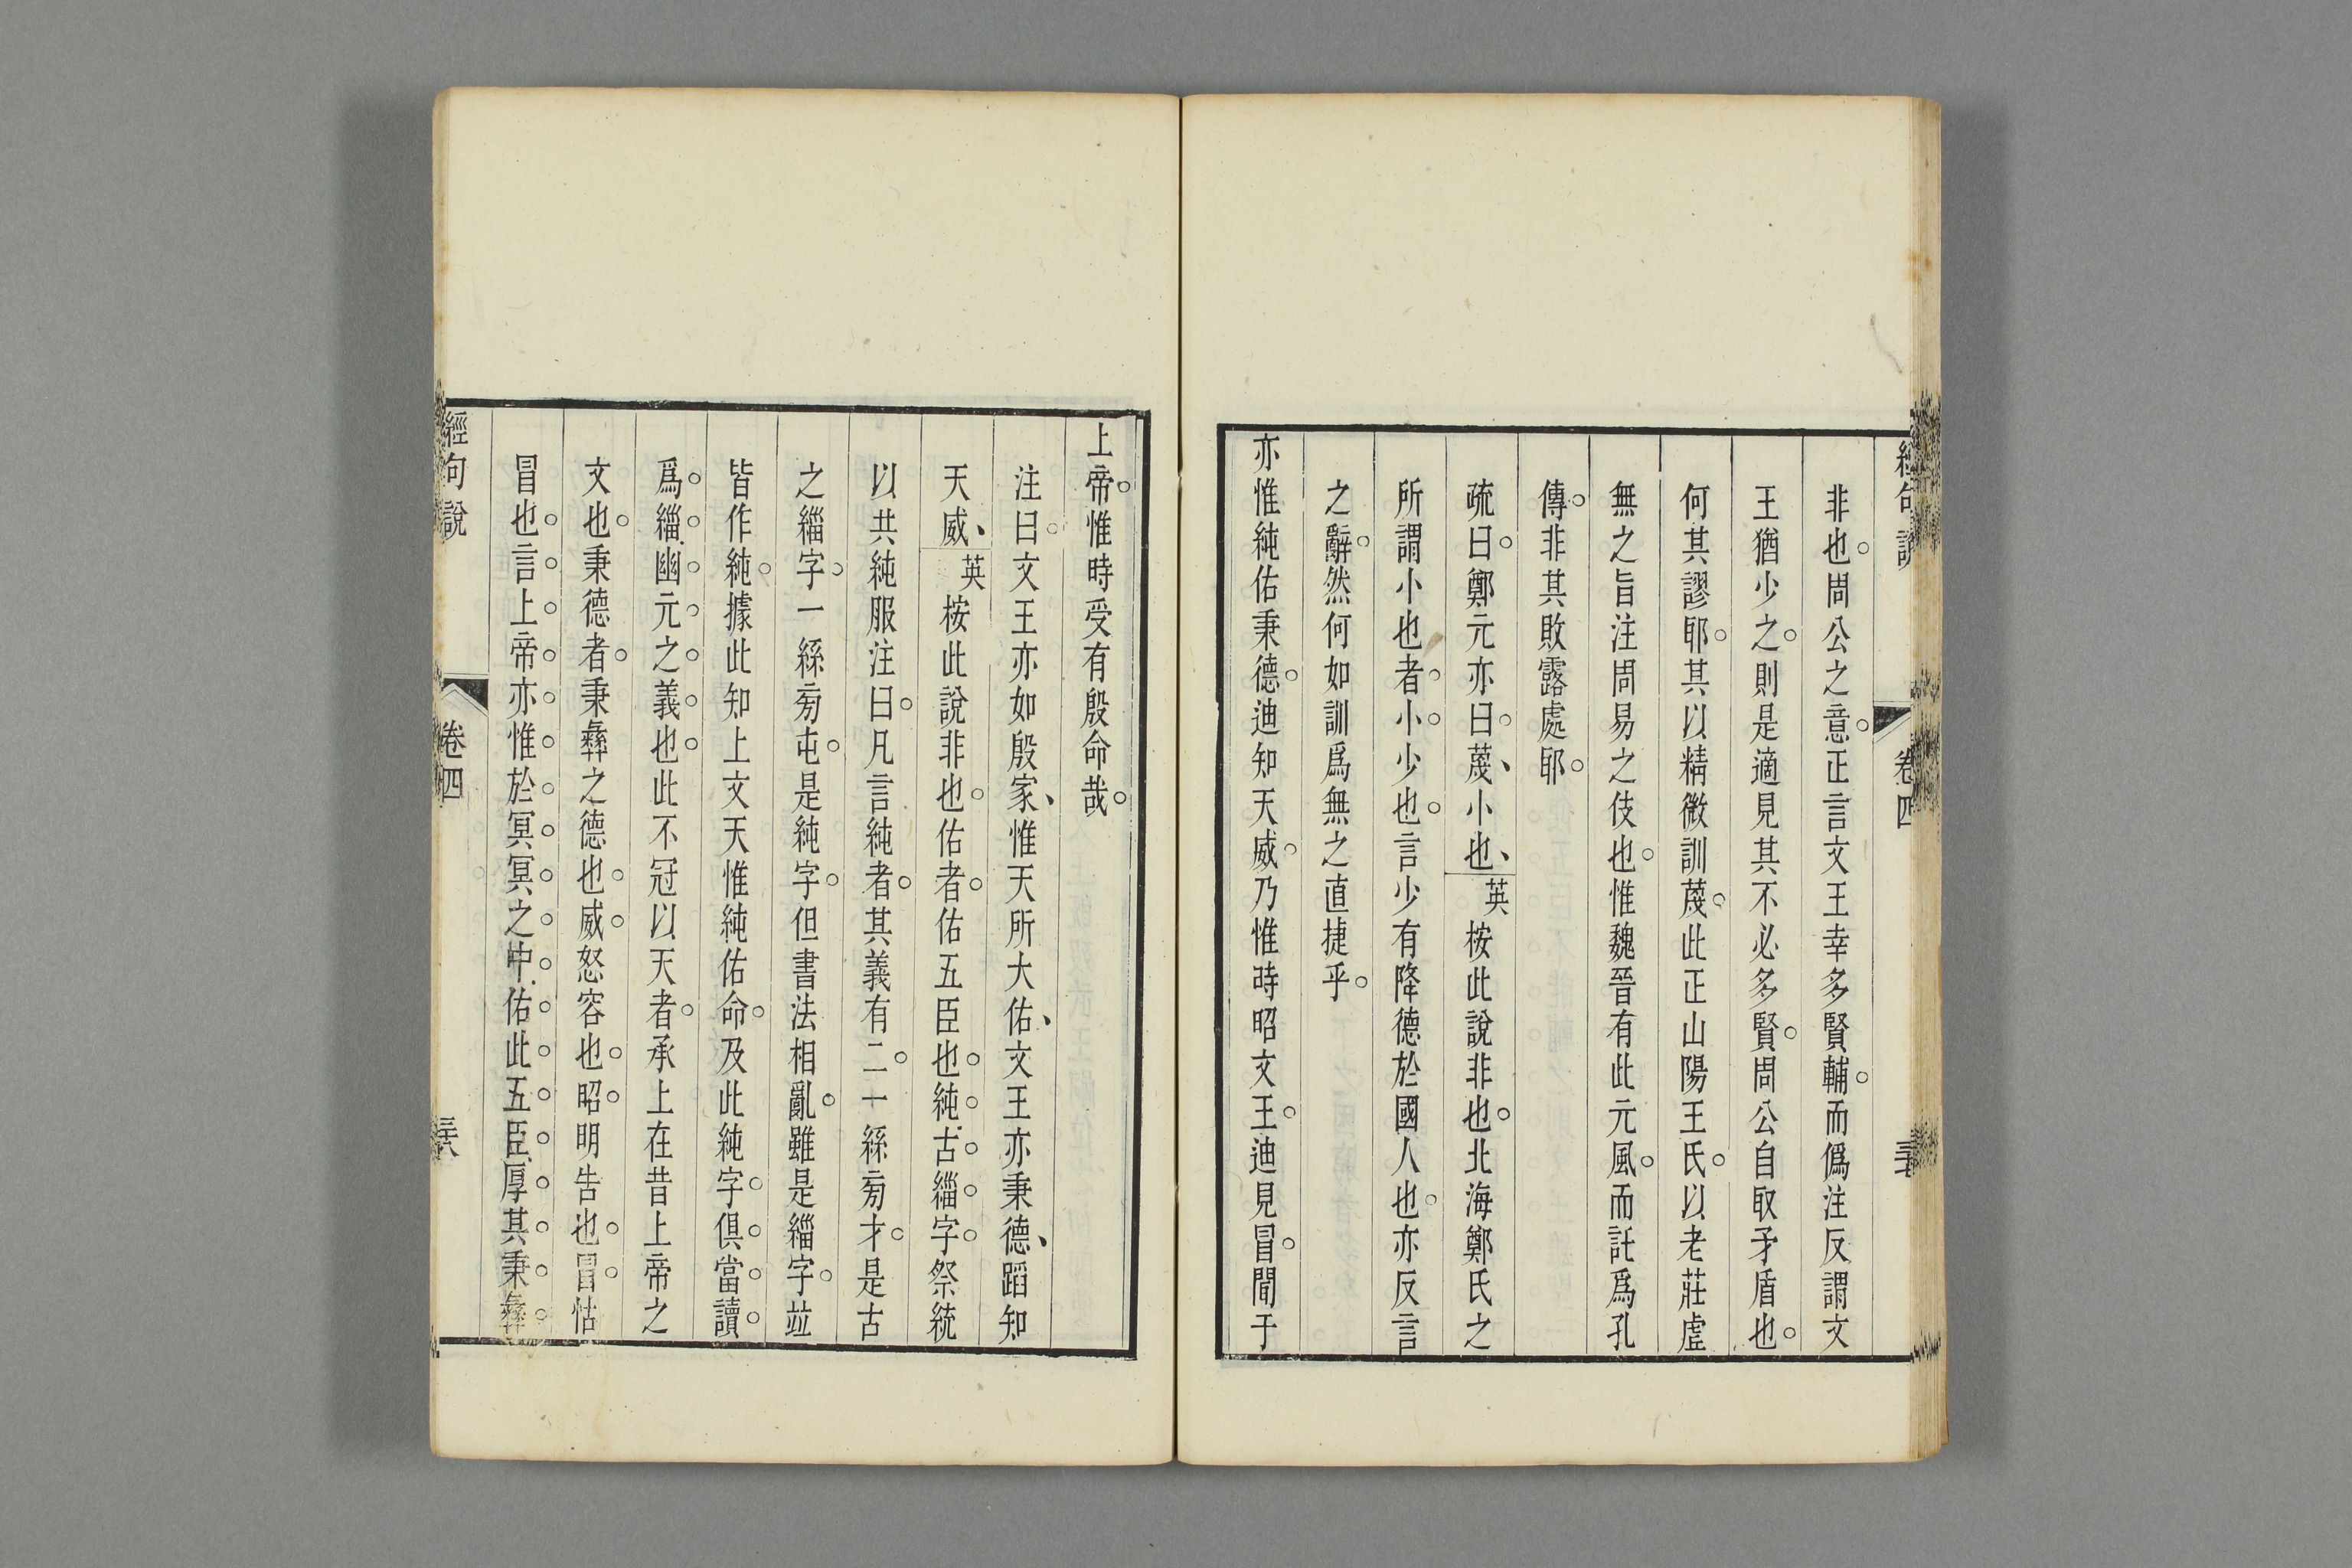 經句說 卷四 三十七
非也。周公之意。正言文王幸多賢輔。而僞注反謂文
王猶少之。則是適見其不必多賢。周公自取矛盾也。
何其謬耶。其以精微訓蔑。此正山陽王氏。以老莊虛
無之旨注周易之伎也。惟魏晉有此元風。而託爲孔
傳。非其敗露處耶。
疏曰。鄭元亦曰。蔑、小也、英按此說非也。北海鄭氏之
所謂小也者。小。少也。言少有降德於國人也。亦反言
之辭。然何如訓爲無之直捷乎。
亦惟純佑秉德。迪知天威。乃惟時昭文王。迪見冒。聞于
上帝。惟時受有殷命哉。
注曰。文王亦如殷家、惟天所大佑、文王亦秉德、蹈知
天威、英按此說非也。佑者。佑五臣也。純。古。緇。字。祭統
以共純服注曰。凡言純者。其義有二。一絲旁才。是古
之緇字。一絲旁屯。是純字。但書法相亂。雖是緇字。竝
皆作純。據此知上文天惟純佑命。及此純字。俱。當。讀。
爲。緇。幽。元。之。義。也。此不冠以天者。承上在昔上帝之
文也。秉德者。秉彝之德也。威。怒容也。昭。明告也。冒。怙
冒也。言。上。帝。亦。惟。於。冥。冥。之。中。佑。此。五。臣。厚。其。秉。彝。
經句說 卷四 三十八